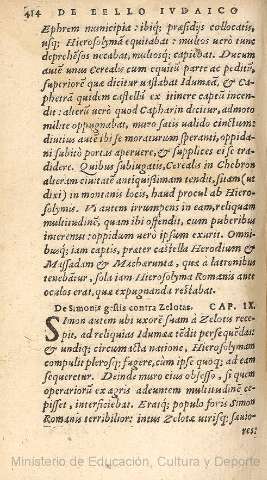 414 DE BELLO IVDAICO
Ephrem municipia: ibiq; præsidijs collocatis,
usq; Hierosolyma equitabat: multos uerò tunc
deprehēsos necabat, multosq; capiebat. Ducum
autē unus Cerealis cum equitū parte ac peditū,
superiorē quæ dicitur uastabat Idumæā, & Ca-
phetra quidem castellū ex itinere captū incen-
dit: alterū uerò quod Capharin dicitur, admoto
milite oppugnabat, muro satis valido cinctum:
diutius autē ibi se moraturum speranti, oppida-
ni subitò portas aperuere, & supplices ei se tra-
didere. Quibus subiugatis, Cerealis in Chebron
alteram ciuitatē antiquissimam tendit, sitam (ut
dixi) in montanis locis, haud procul ab Hiero-
solymis. Vi autem irrumpens in eam, reliquam
multitudinē, quam ibi offendit, cum puberibus
interemit: oppidum uerò ipsum exurit. Omni-
busq; iam captis, præter castella Herodium &
Massadam & Macharunta, quæ a latronibus
tenebātur, sola iam Hierosolyma Romanis ante
oculos erat, quæ expugnanda restabat.
De Simonis gestis contra Zelotas. CAP. IX.
SImon autem ubi uxorē suam à Zelotis rece-
pit, ad reliquias Idumææ tēdit persequēdas:
& undiq; circumacta natione, Hierosolymam
compulit plerosq; fugere, cùm ipse quoq; ad eam
sequeretur. Deinde muro eius obsesso, si quem
operariorū ex agris adeuntem multitudinē ce-
pisset, interficiebat. Eratq; populo foris Simon
Romanis terribilior: intus Zelotæ utrisq; sæuio-
res:
Ministerio de Educación, Cultura y Deporte